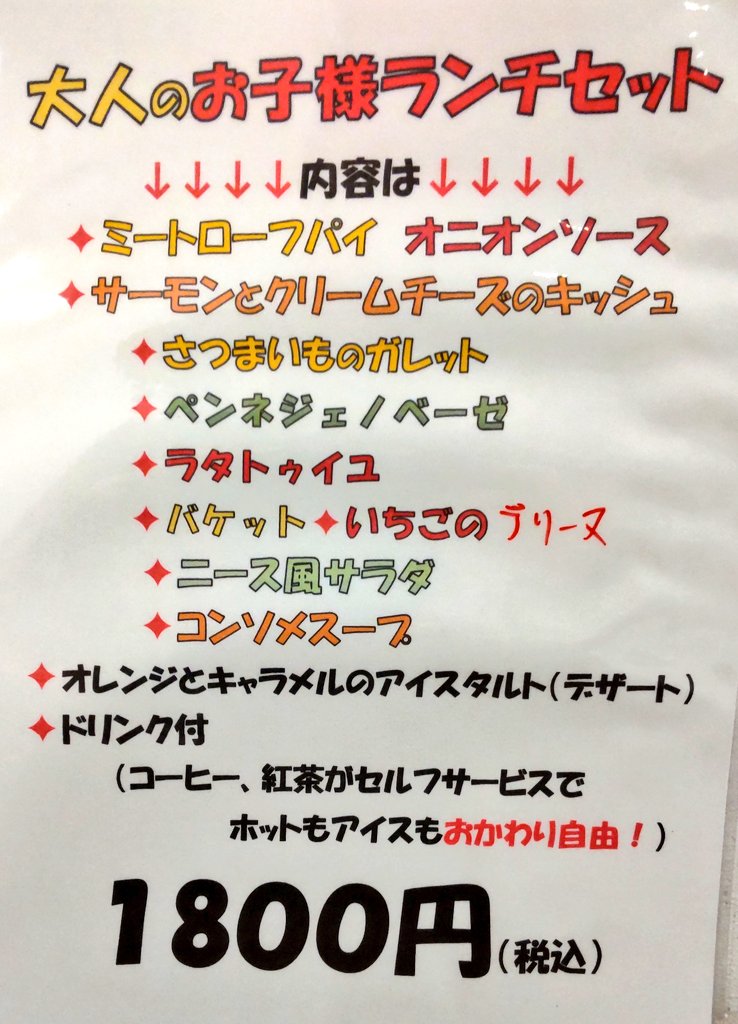 大人のお子様ランチセット
↓↓↓↓内容は↓↓↓↓
✦ミートローフパイ オニオンソース
✦サーモンとクリームチーズのキッシュ
✦さつまいものガレット
✦ペンネジェノベーゼ
✦ラタトゥイユ
✦バケット✦いちごのプリーヌ
✦ニース風サラダ
✦コンソメスープ
✦オレンジとキャラメルのアイスタルト(デザート)
✦ドリンク付
(コーヒー、紅茶がセルフサービスで
ホットもアイスもおかわり自由!)
1800円(税込)